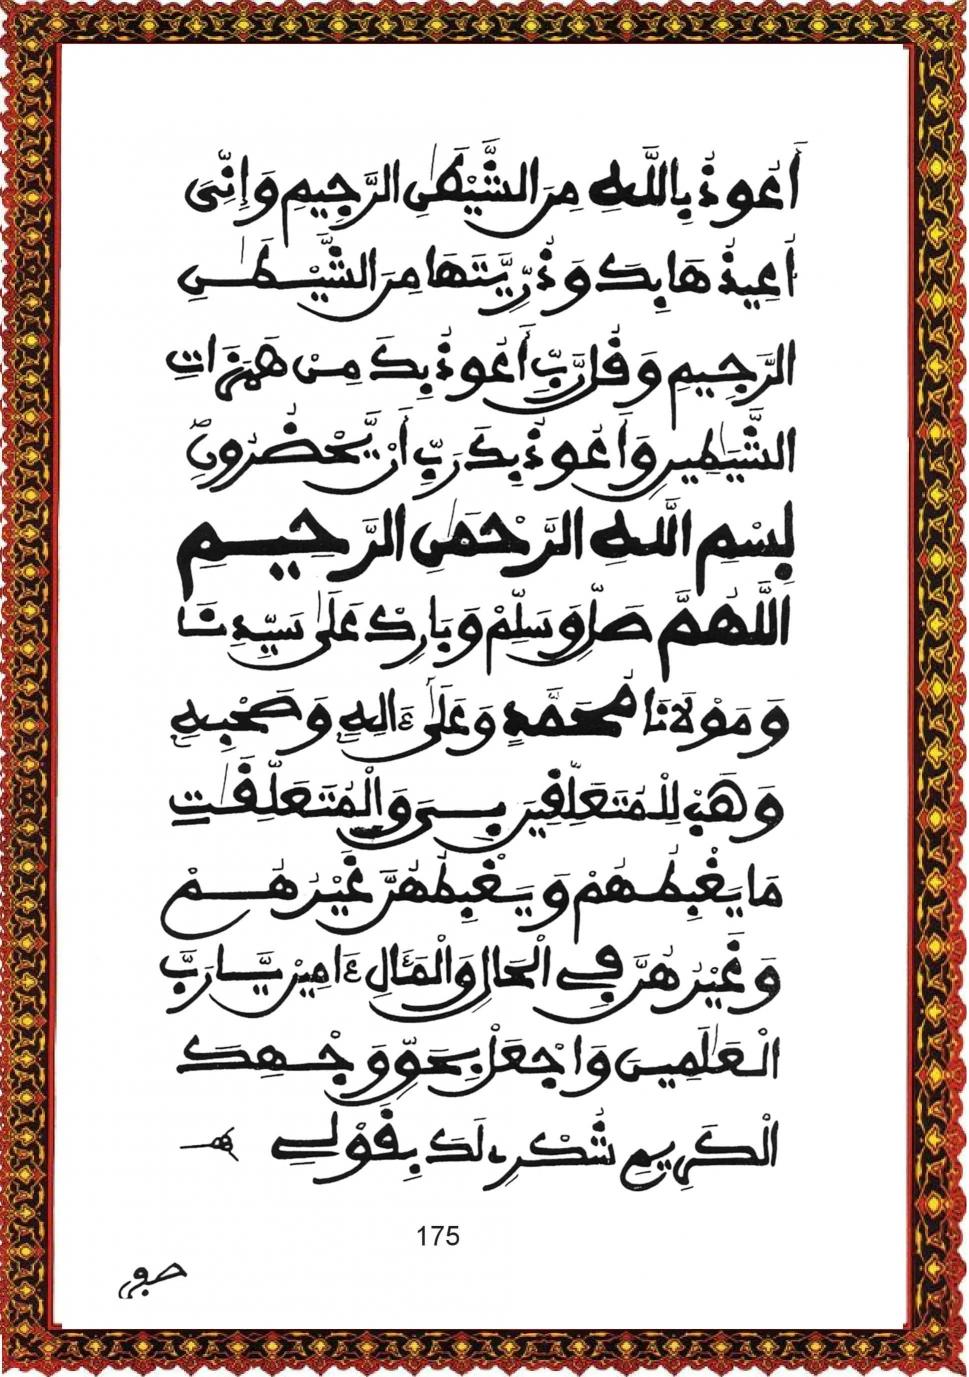 أَعُوذُ بِاللَّهِ مِنَ الشَّيْطَٰنِ الرَّجِيمِ وَإِنِّىَ
أُعِيذُهَا بِكَ وَذُرِّيَّتَهَا مِنَ الشَّيْطَٰنِ
الرَّجِيمِ وَقُل رَّبِّ أَعُوذُ بِكَ مِنْ هَمَزَاتِ
الشَّيَٰطِينِ وَأَعُوذُ بِكَ رَبِّ أَنْ يَّحْضُرُونِ
بِسْمِ اللَّهِ الرَّحْمَٰنِ الرَّحِيمِ
اللَّهُمَّ صَلِّ وَسَلِّمْ وَبَارِكْ عَلَىٰ سَيِّدِنَا
وَمَوْلَانَا مُحَمَّدٍ وَعَلَىٰ ءَالِهِ وَصَحْبِهِ
وَهَبْ لِلْمُتَعَلِّقِينَ بِىَ وَالْمُتَعَلِّقَٰتِ
مَا يَغْبِطُهُمْ وَيَغْبِطُهُنَّ غَيْرُهُمْ
وَغَيْرُهُنَّ فِى الْحَالِ وَالْمَـَٔالِ ءَامِينَ يَا رَبَّ
الْعَٰلَمِينَ وَاجْعَلْ بِحَقِّ وَجْهِكَ
الْكَرِيمِ شُكْرِى لَكَ بِقَوْلِى
175